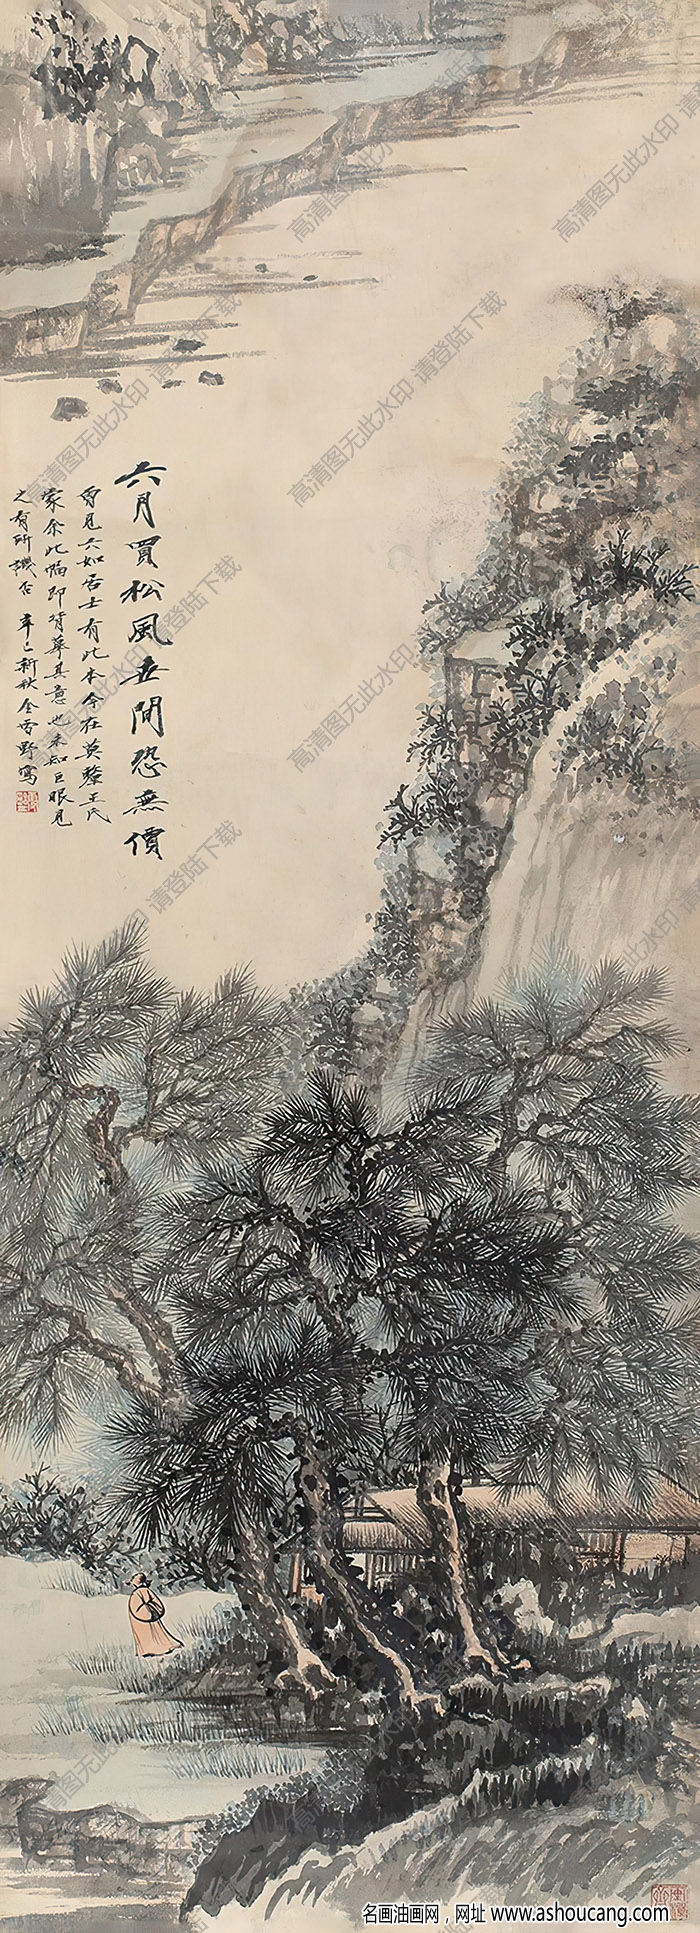 六月買松風世間恐無價
曾見六如居士有此本今在莫釐王氏
家余此幅即背摹其意也未知巨眼見
之有所譏否 辛巳新秋金雪野寫
高清图无此水印 请登陆下载
名画油画网，网址 www.ashoucang.com